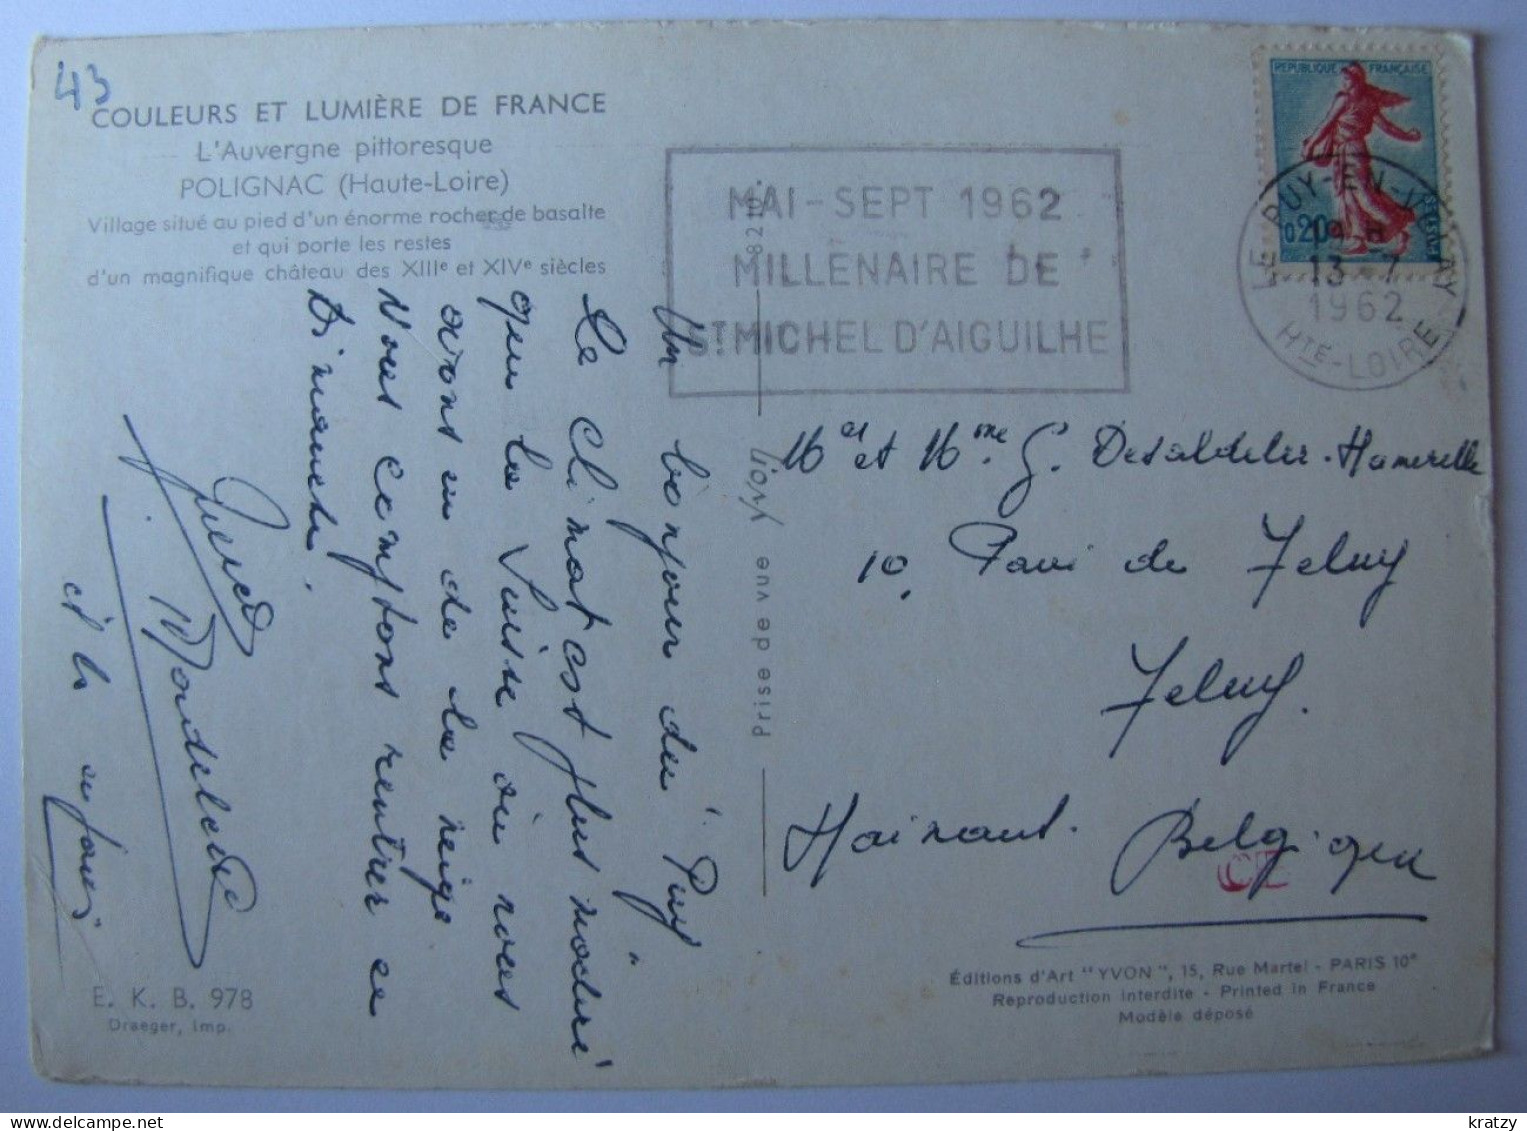 43
COULEURS ET LUMIÈRE DE FRANCE
L'Auvergne pittoresque
POLIGNAC (Haute-Loire)
Village situé au pied d'un énorme rocher de basalte
et qui porte les restes
d'un magnifique château des XIIIe et XIVe siècles
MAI - SEPT 1962
MILLENAIRE DE
ST MICHEL D'AIGUILHE
REPUBLIQUE FRANÇAISE
0,20
LE PUY-EN-VELAY
13 - 7
1962
HTE-LOIRE
Un bonjour du "Puy"
Le climat est plus modéré
que la Suisse où nous
avons eu de la neige
Nous comptons rentrer ce
Dimanche.
et la
Prise de vue Yvon
Mr et Mme. G.
10, Pavé de Feluy
Feluy.
Hainaut. Belgique
E. K. B. 978
Draeger, imp.
Éditions d'Art "YVON", 15, Rue Martel - PARIS 10e
Reproduction interdite - Printed in France
Modèle déposé
kratzy
www.delcampe.net